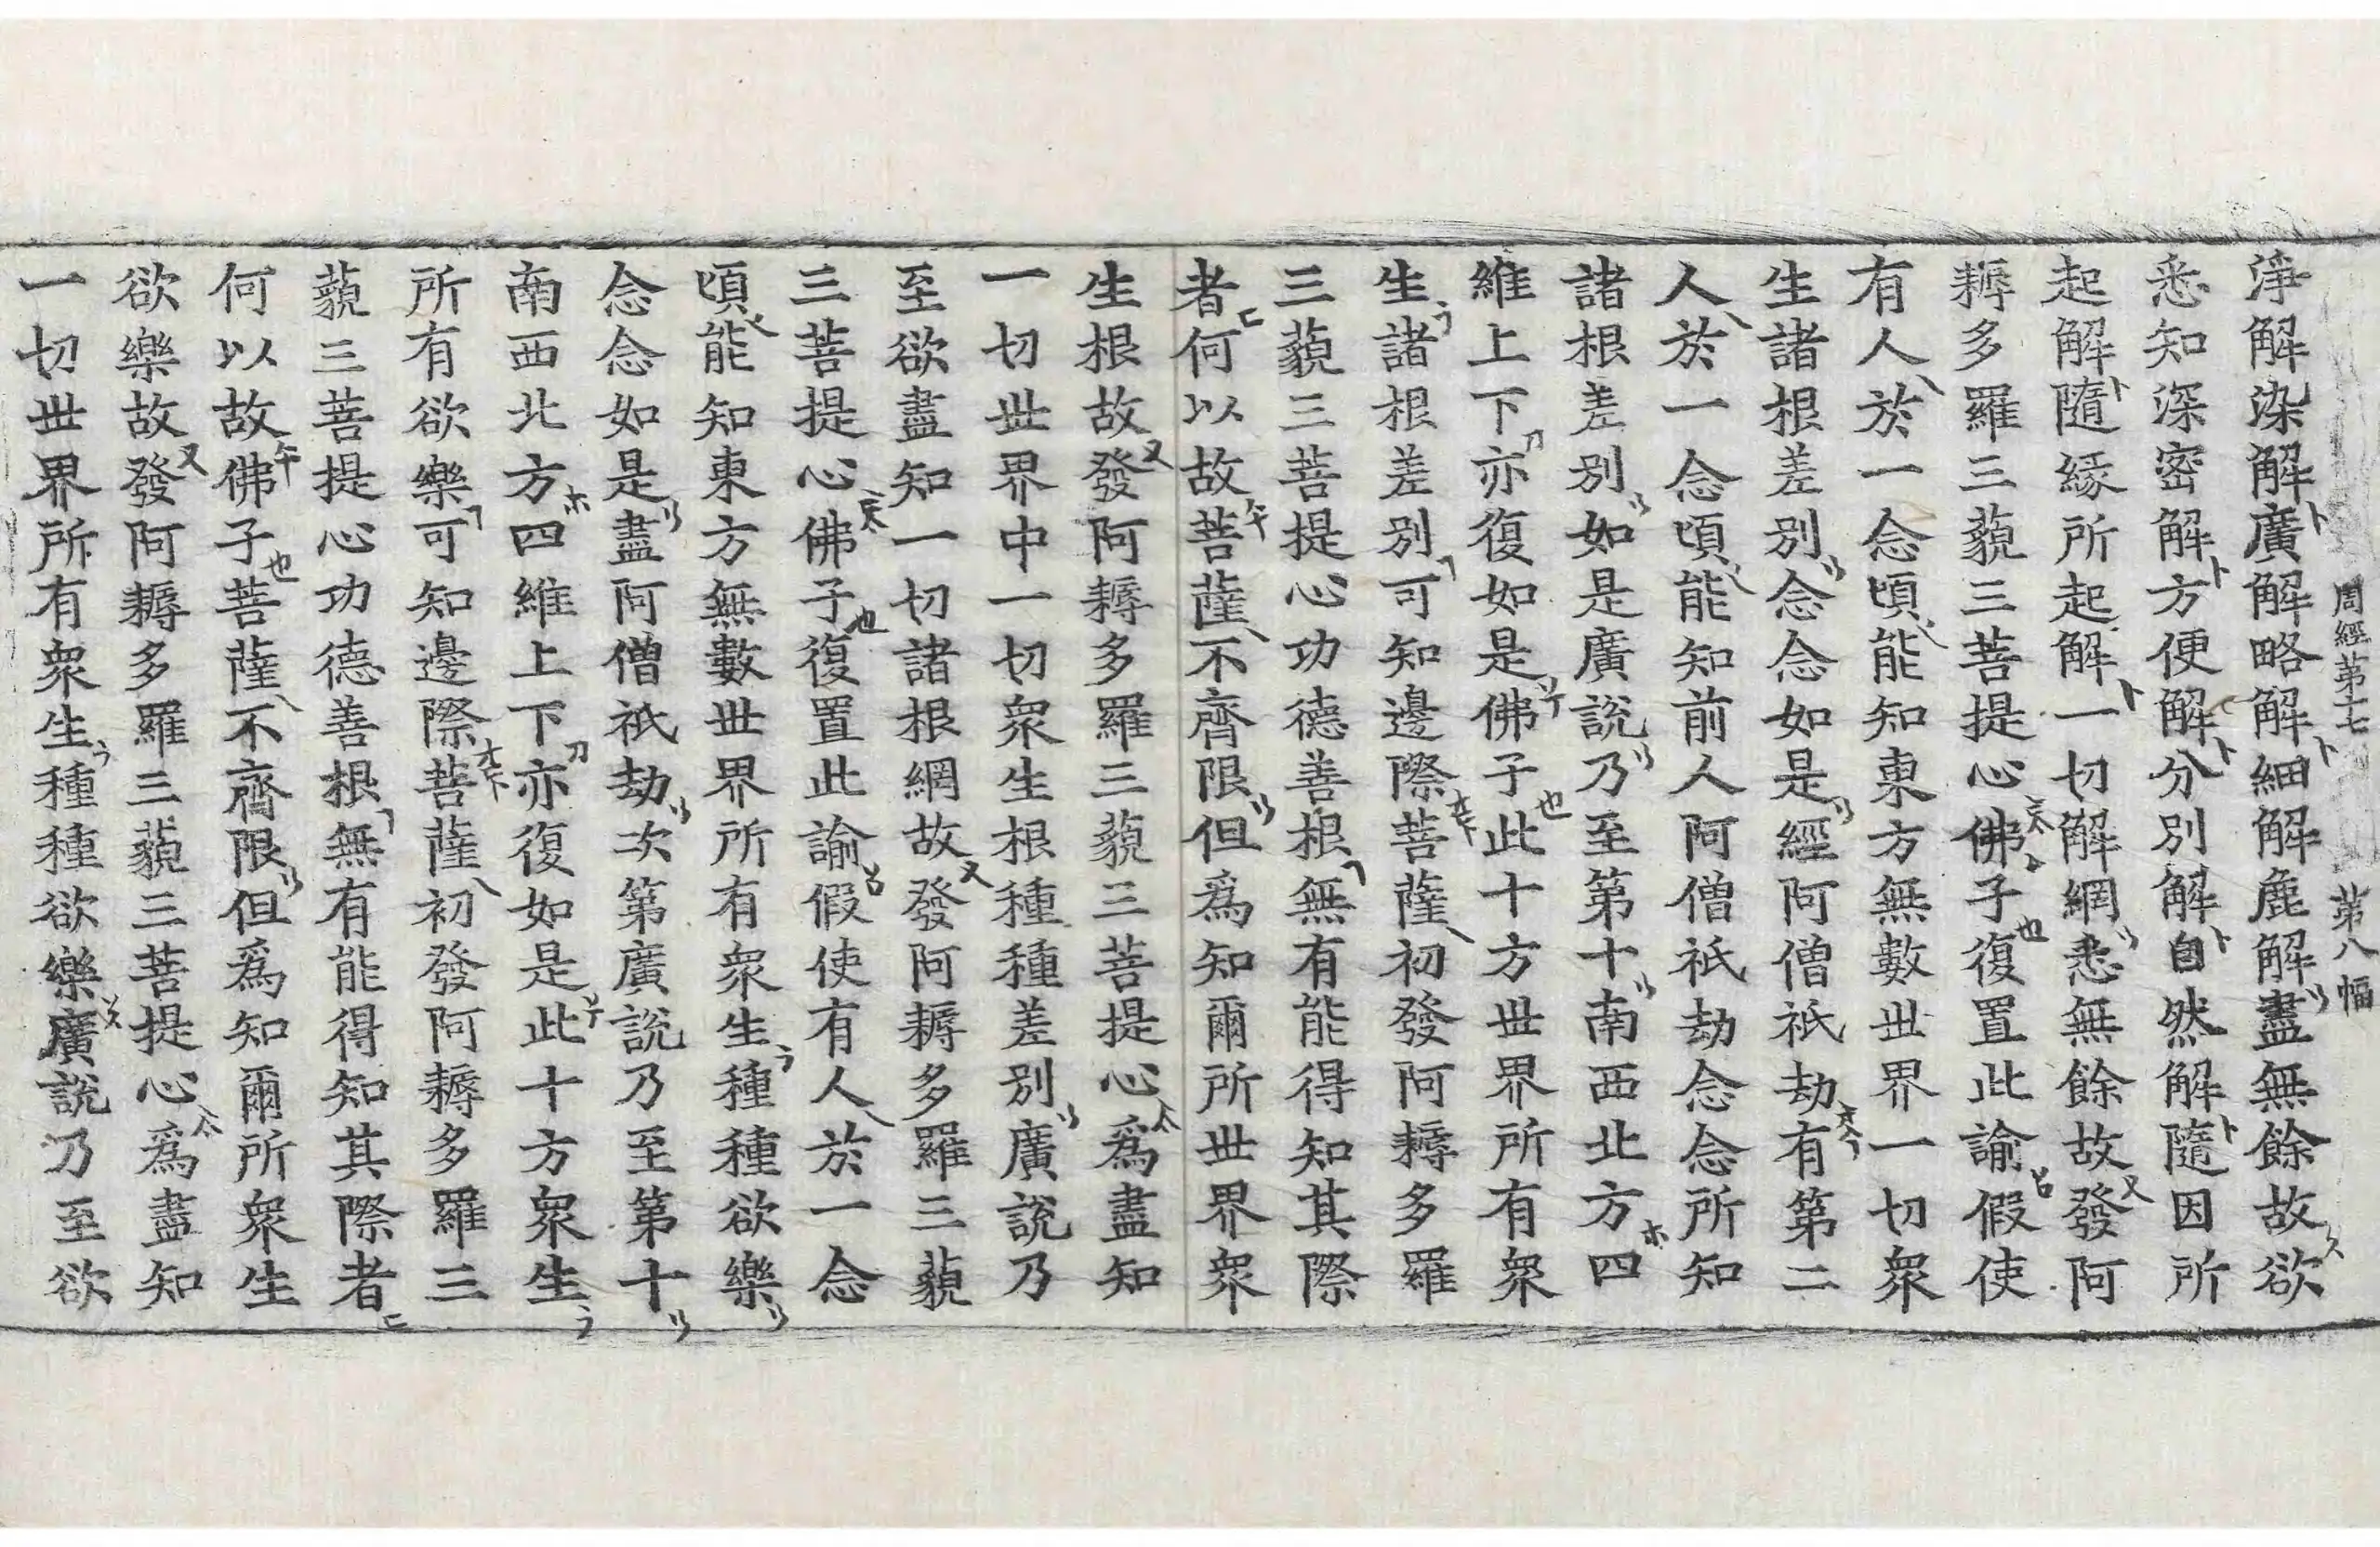 周經第十七 第八幅
淨解染解廣解略解細解麁解盡無餘故欲
悉知深密解方便解分別解自然解隨因所
起解隨緣所起解一切解網悉無餘故發阿
耨多羅三藐三菩提心佛子復置此諭假使
有人於一念頃能知東方無數世界一切衆
生諸根差別念念如是經阿僧祇劫有第二
人於一念頃能知前人阿僧祇劫念念所知
諸根差別如是廣說乃至第十南西北方四
維上下亦復如是佛子此十方世界所有衆
生諸根差別可知邊際菩薩初發阿耨多羅
三藐三菩提心功德善根無有能得知其際
者何以故菩薩不齊限但爲知爾所世界衆
生根故發阿耨多羅三藐三菩提心爲盡知
一切世界中一切衆生根種種差別廣說乃
至欲盡知一切諸根網故發阿耨多羅三藐
三菩提心佛子復置此諭假使有人於一念
頃能知東方無數世界所有衆生種種欲樂
念念如是盡阿僧祇劫次第廣說乃至第十
南西北方四維上下亦復如是此十方衆生
所有欲樂可知邊際菩薩初發阿耨多羅三
藐三菩提心功德善根無有能得知其際者
何以故佛子菩薩不齊限但爲知爾所衆生
欲樂故發阿耨多羅三藐三菩提心爲盡知
一切世界所有衆生種種欲樂廣說乃至欲